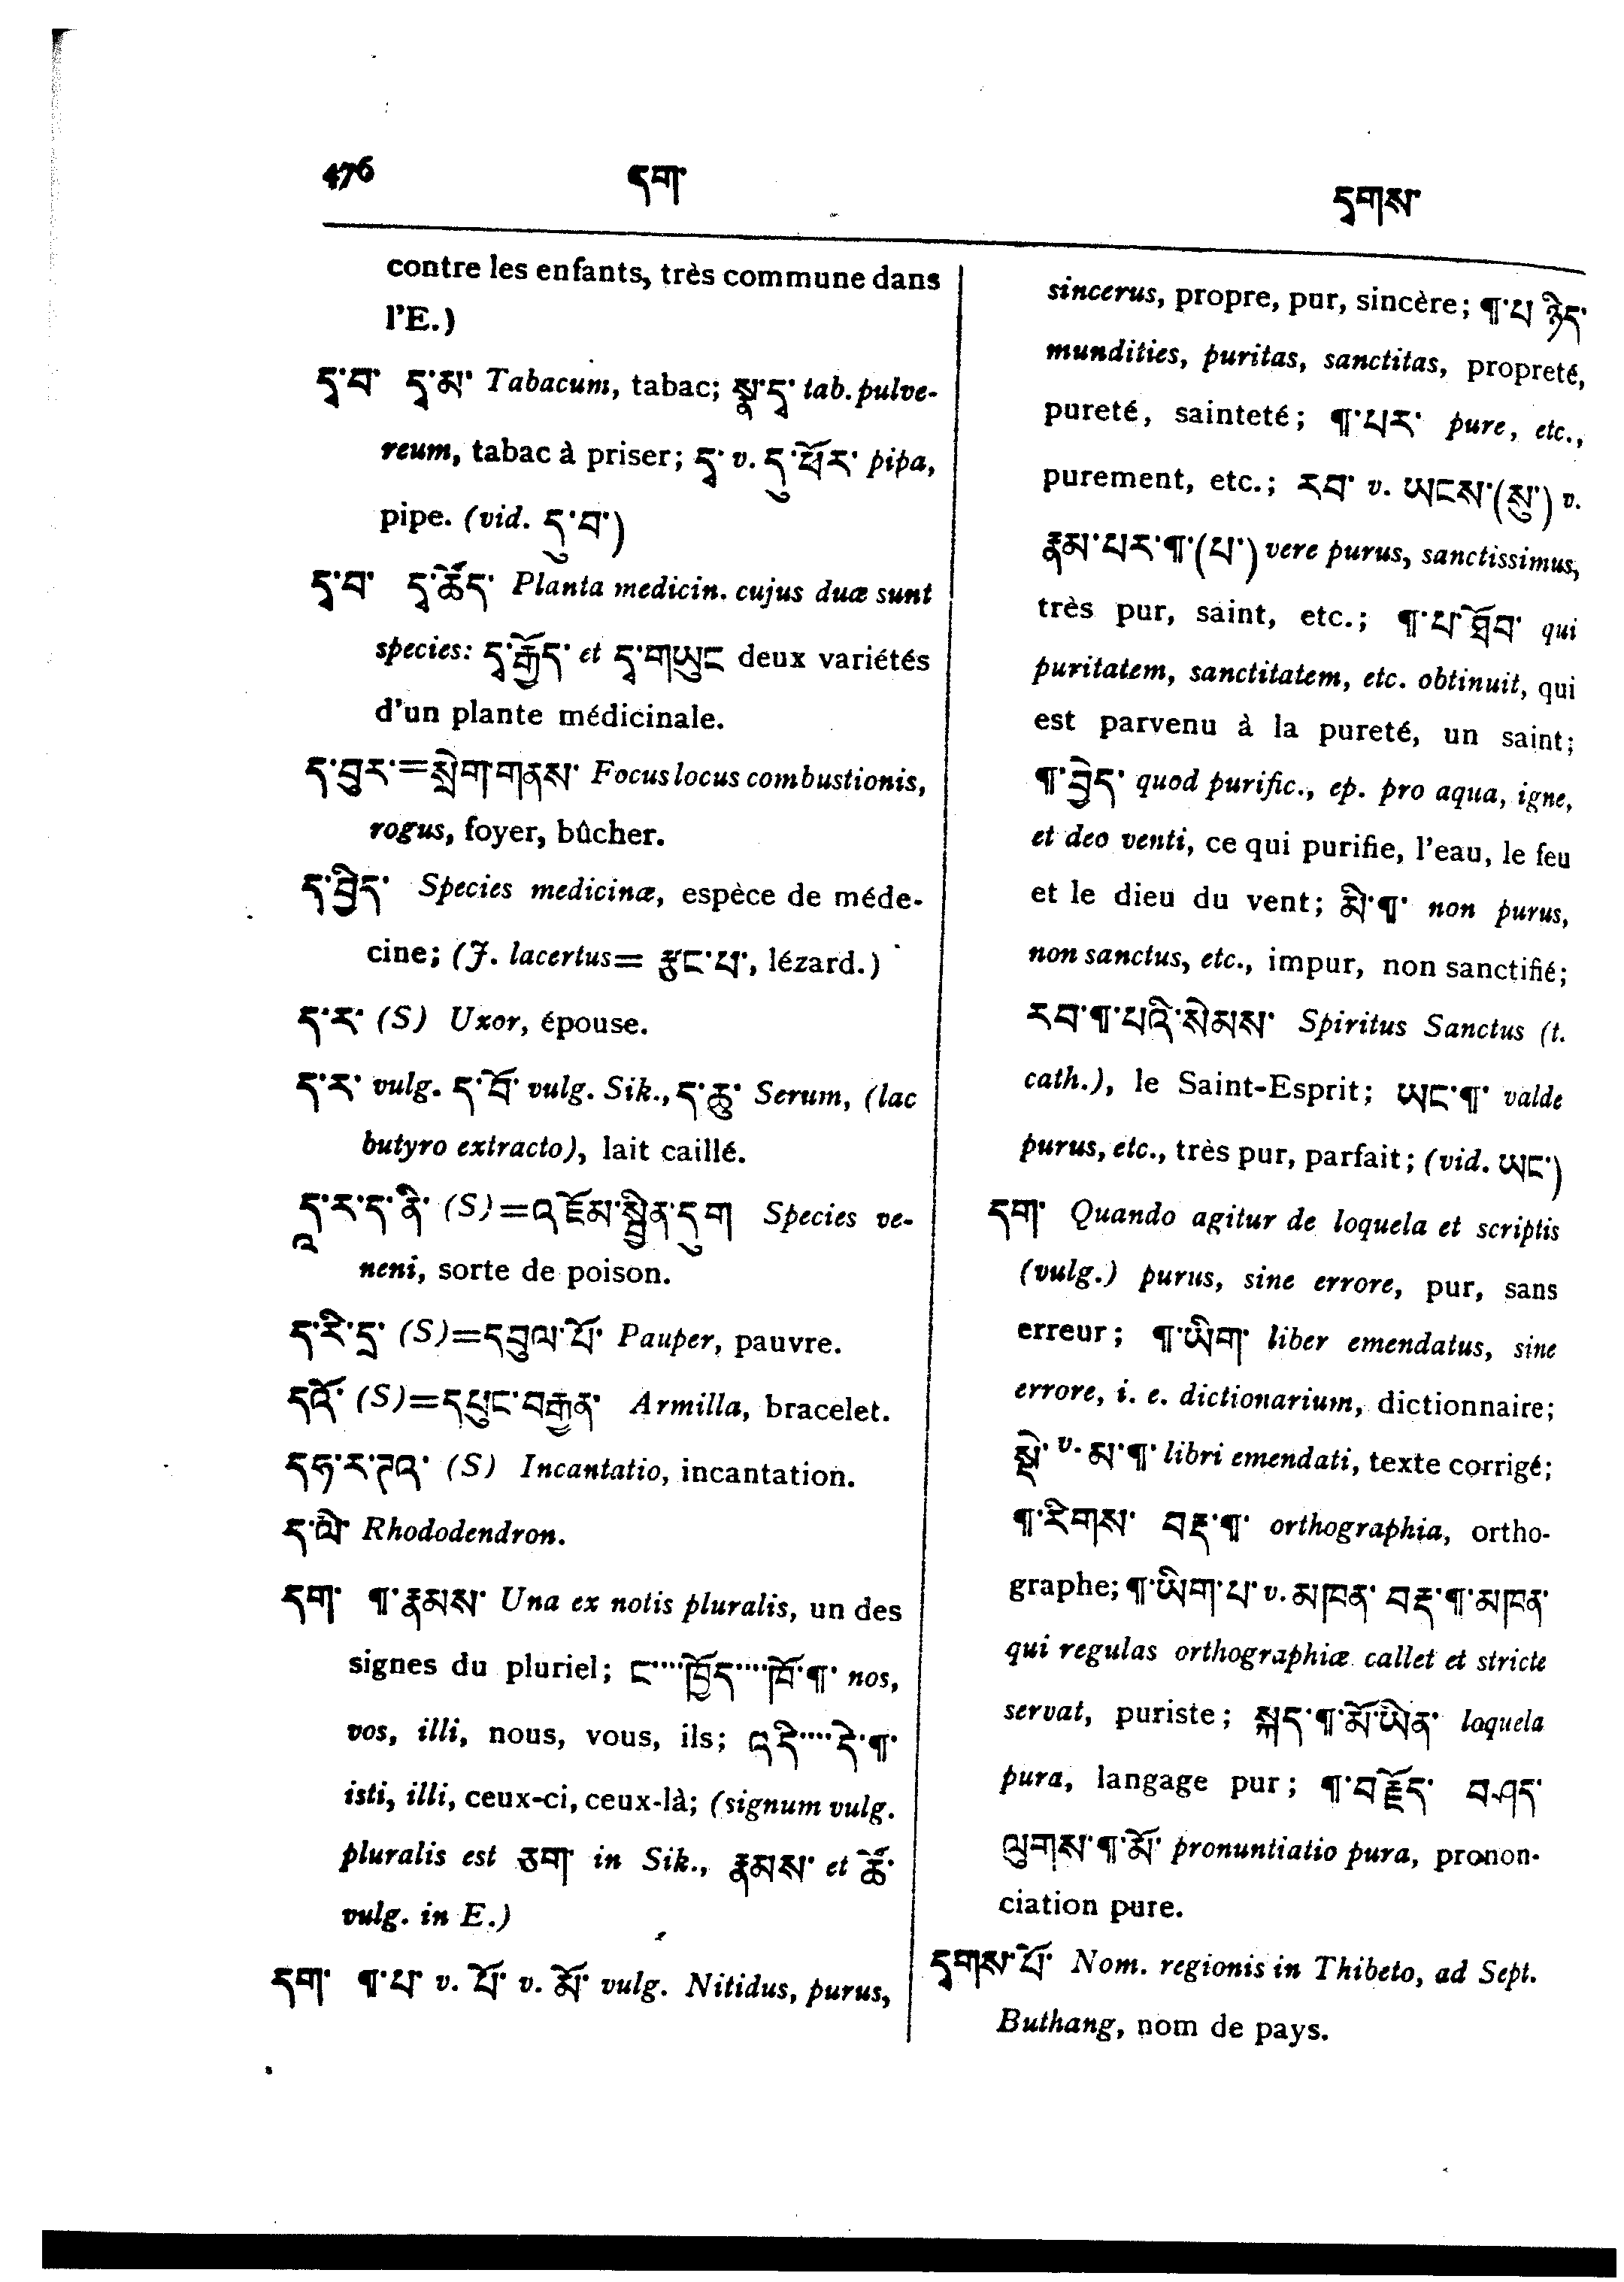 476 དག་ དྭགས་
contre les enfants, très commune dans
l'E.)
དྭ་བ་ དྭ་མ་ Tabacum, tabac; སྣ་དྭ་ tab. pulve-
reum, tabac à priser; དྭ་ v. དུ་ཕོར་ pipa,
pipe. (vid. དུ་བ་)
དྭ་བ་ དྭ་ཚོད་ Planta medicin. cujus duæ sunt
species: དྭ་རྒོད་ et དྭ་གཡུང deux variétés
d'un plante médicinale.
ད་བུར་=སྲེག་གནས་ Focus locus combustionis,
rogus, foyer, bûcher.
ད་བྱིད་ Species medicinæ, espèce de méde-
cine; (J. lacertus= རྩངས་པ་, lézard.)
ད་ར་ (S) Uxor, épouse.
ད་ར་ vulg. ད་བོ་ vulg. Sik., ད་ཆུ་ Serum, (lac
butyro extracto), lait caillé.
དཱ་ར་ད་ནི་ (S)=འཛོམ་སྦྱིན་དུག Species ve-
neni, sorte de poison.
ད་རི་དྲ་ (S)=དབུལ་པོ་ Pauper, pauvre.
དའོ་ (S)=དཔུང་བརྒྱན་ Armilla, bracelet.
དཧ་ར་ཊའ་ (S) Incantatio, incantation.
ད་ལི་ Rhododendron.
དག་ ¶་རྣམས་ Una ex notis pluralis, un des
signes du pluriel; ང་····ཁྱོད་····ཁོ་¶་ nos,
vos, illi, nous, vous, ils; འདི་····དེ་¶་
isti, illi, ceux-ci, ceux-là; (signum vulg.
pluralis est ཅག་ in Sik., རྣམས་ et ཚོ་
vulg. in E.)
དག་ ¶་པ་ v. པོ་ v. མོ་ vulg. Nitidus, purus,
sincerus, propre, pur, sincère; ¶་པ ཉིད་
mundities, puritas, sanctitas, propreté,
pureté, sainteté; ¶་པར་ pure, etc.,
purement, etc.; རབ་ v. ཡངས་(སུ་) v.
རྣམ་པར་¶་(པ་) vere purus, sanctissimus,
très pur, saint, etc.; ¶་པ་ཐོབ་ qui
puritatem, sanctitatem, etc. obtinuit, qui
est parvenu à la pureté, un saint;
¶་བྱེད་ quod purific., ep. pro aqua, igne,
et deo venti, ce qui purifie, l'eau, le feu
et le dieu du vent; མི་¶་ non purus,
non sanctus, etc., impur, non sanctifié;
རབ་¶་པའི་སེམས་ Spiritus Sanctus (t.
cath.), le Saint-Esprit; ཡང་¶་ valde
purus, etc., très pur, parfait; (vid. ཡང་)
དག་ Quando agitur de loquela et scriptis
(vulg.) purus, sine errore, pur, sans
erreur; ¶་ཡིག་ liber emendatus, sine
errore, i. e. dictionarium, dictionnaire;
སྡེ་ v. མ་¶་ libri emendati, texte corrigé;
¶་རིགས་ བརྡ་¶་ orthographia, ortho-
graphe; ¶་ཡིག་པ་ v. མཁན་ བརྡ་¶་མཁན་
qui regulas orthographiæ callet et stricte
servat, puriste; སྐད་¶་མོ་ཡིན་ loquela
pura, langage pur; ¶་བརྗོད་ བཤད་
ལུགས་¶་མོ་ pronuntiatio pura, pronon-
ciation pure.
དྭགས་པོ་ Nom. regionis in Thibeto, ad Sept.
Buthang, nom de pays.